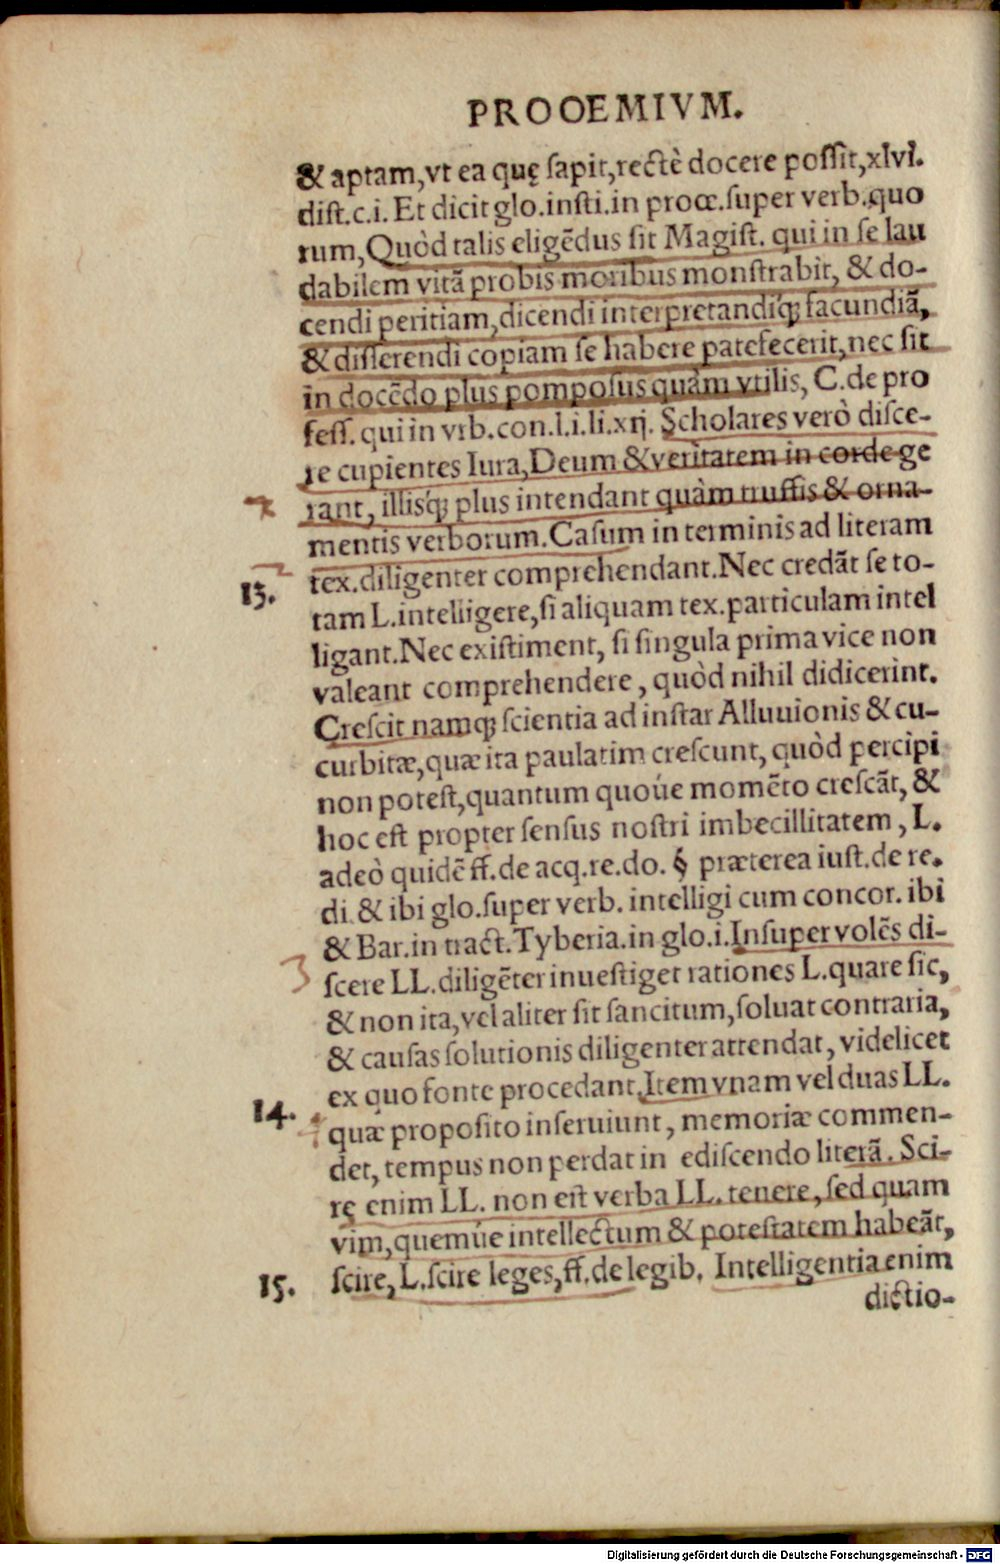 PROOEMIVM.
& aptam, vt ea quę sapit, rectè docere possit, xlvi.
dist.c.i. Et dicit glo.insti.in proœ.super verb.quo
rum, Quòd talis eligēdus sit Magist. qui in se lau
dabilem vitã probis moribus monstrabit, & do-
cendi peritiam, dicendi interpretandíq; facundiã,
& disserendi copiam se habere patefecerit, nec sit
in docēdo plus pomposus quàm vtilis, C.de pro
fess. qui in vrb.con.l.i.li.xij. Scholares verò disce-
re cupientes Iura, Deum & veritatem in corde ge
rant, illisq́; plus intendant quàm truffis & orna-
mentis verborum. Casum in terminis ad literam
13. tex.diligenter comprehendant. Nec credãt se to-
tam L.intelligere, si aliquam tex.particulam intel
ligant. Nec existiment, si singula prima vice non
valeant comprehendere, quòd nihil didicerint.
Crescit namq; scientia ad instar Alluuionis & cu-
curbitæ, quæ ita paulatim crescunt, quòd percipi
non potest, quantum quoúe momēto crescãt, &
hoc est propter sensus nostri imbecillitatem, L.
adeò quidē ff.de acq.re.do. § præterea iust.de re.
di. & ibi glo.super verb. intelligi cum concor. ibi
& Bar.in tract.Tyberia.in glo.i. Insuper volēs di-
3 scere LL.diligēter inuestiget rationes L.quare sic,
& non ita, vel aliter sit sancitum, soluat contraria,
& causas solutionis diligenter attendat, videlicet
ex quo fonte procedant. Item vnam vel duas LL.
14. quæ proposito inseruiunt, memoriæ commen-
det, tempus non perdat in ediscendo literã. Sci-
rę enim LL. non est verba LL. tenere, sed quam
vim, quemúe intellectum & potestatem habeãt,
15. scire, L.scire leges, ff.de legib. Intelligentia enim
dictio-
Digitalisierung gefördert durch die Deutsche Forschungsgemeinschaft - DFG